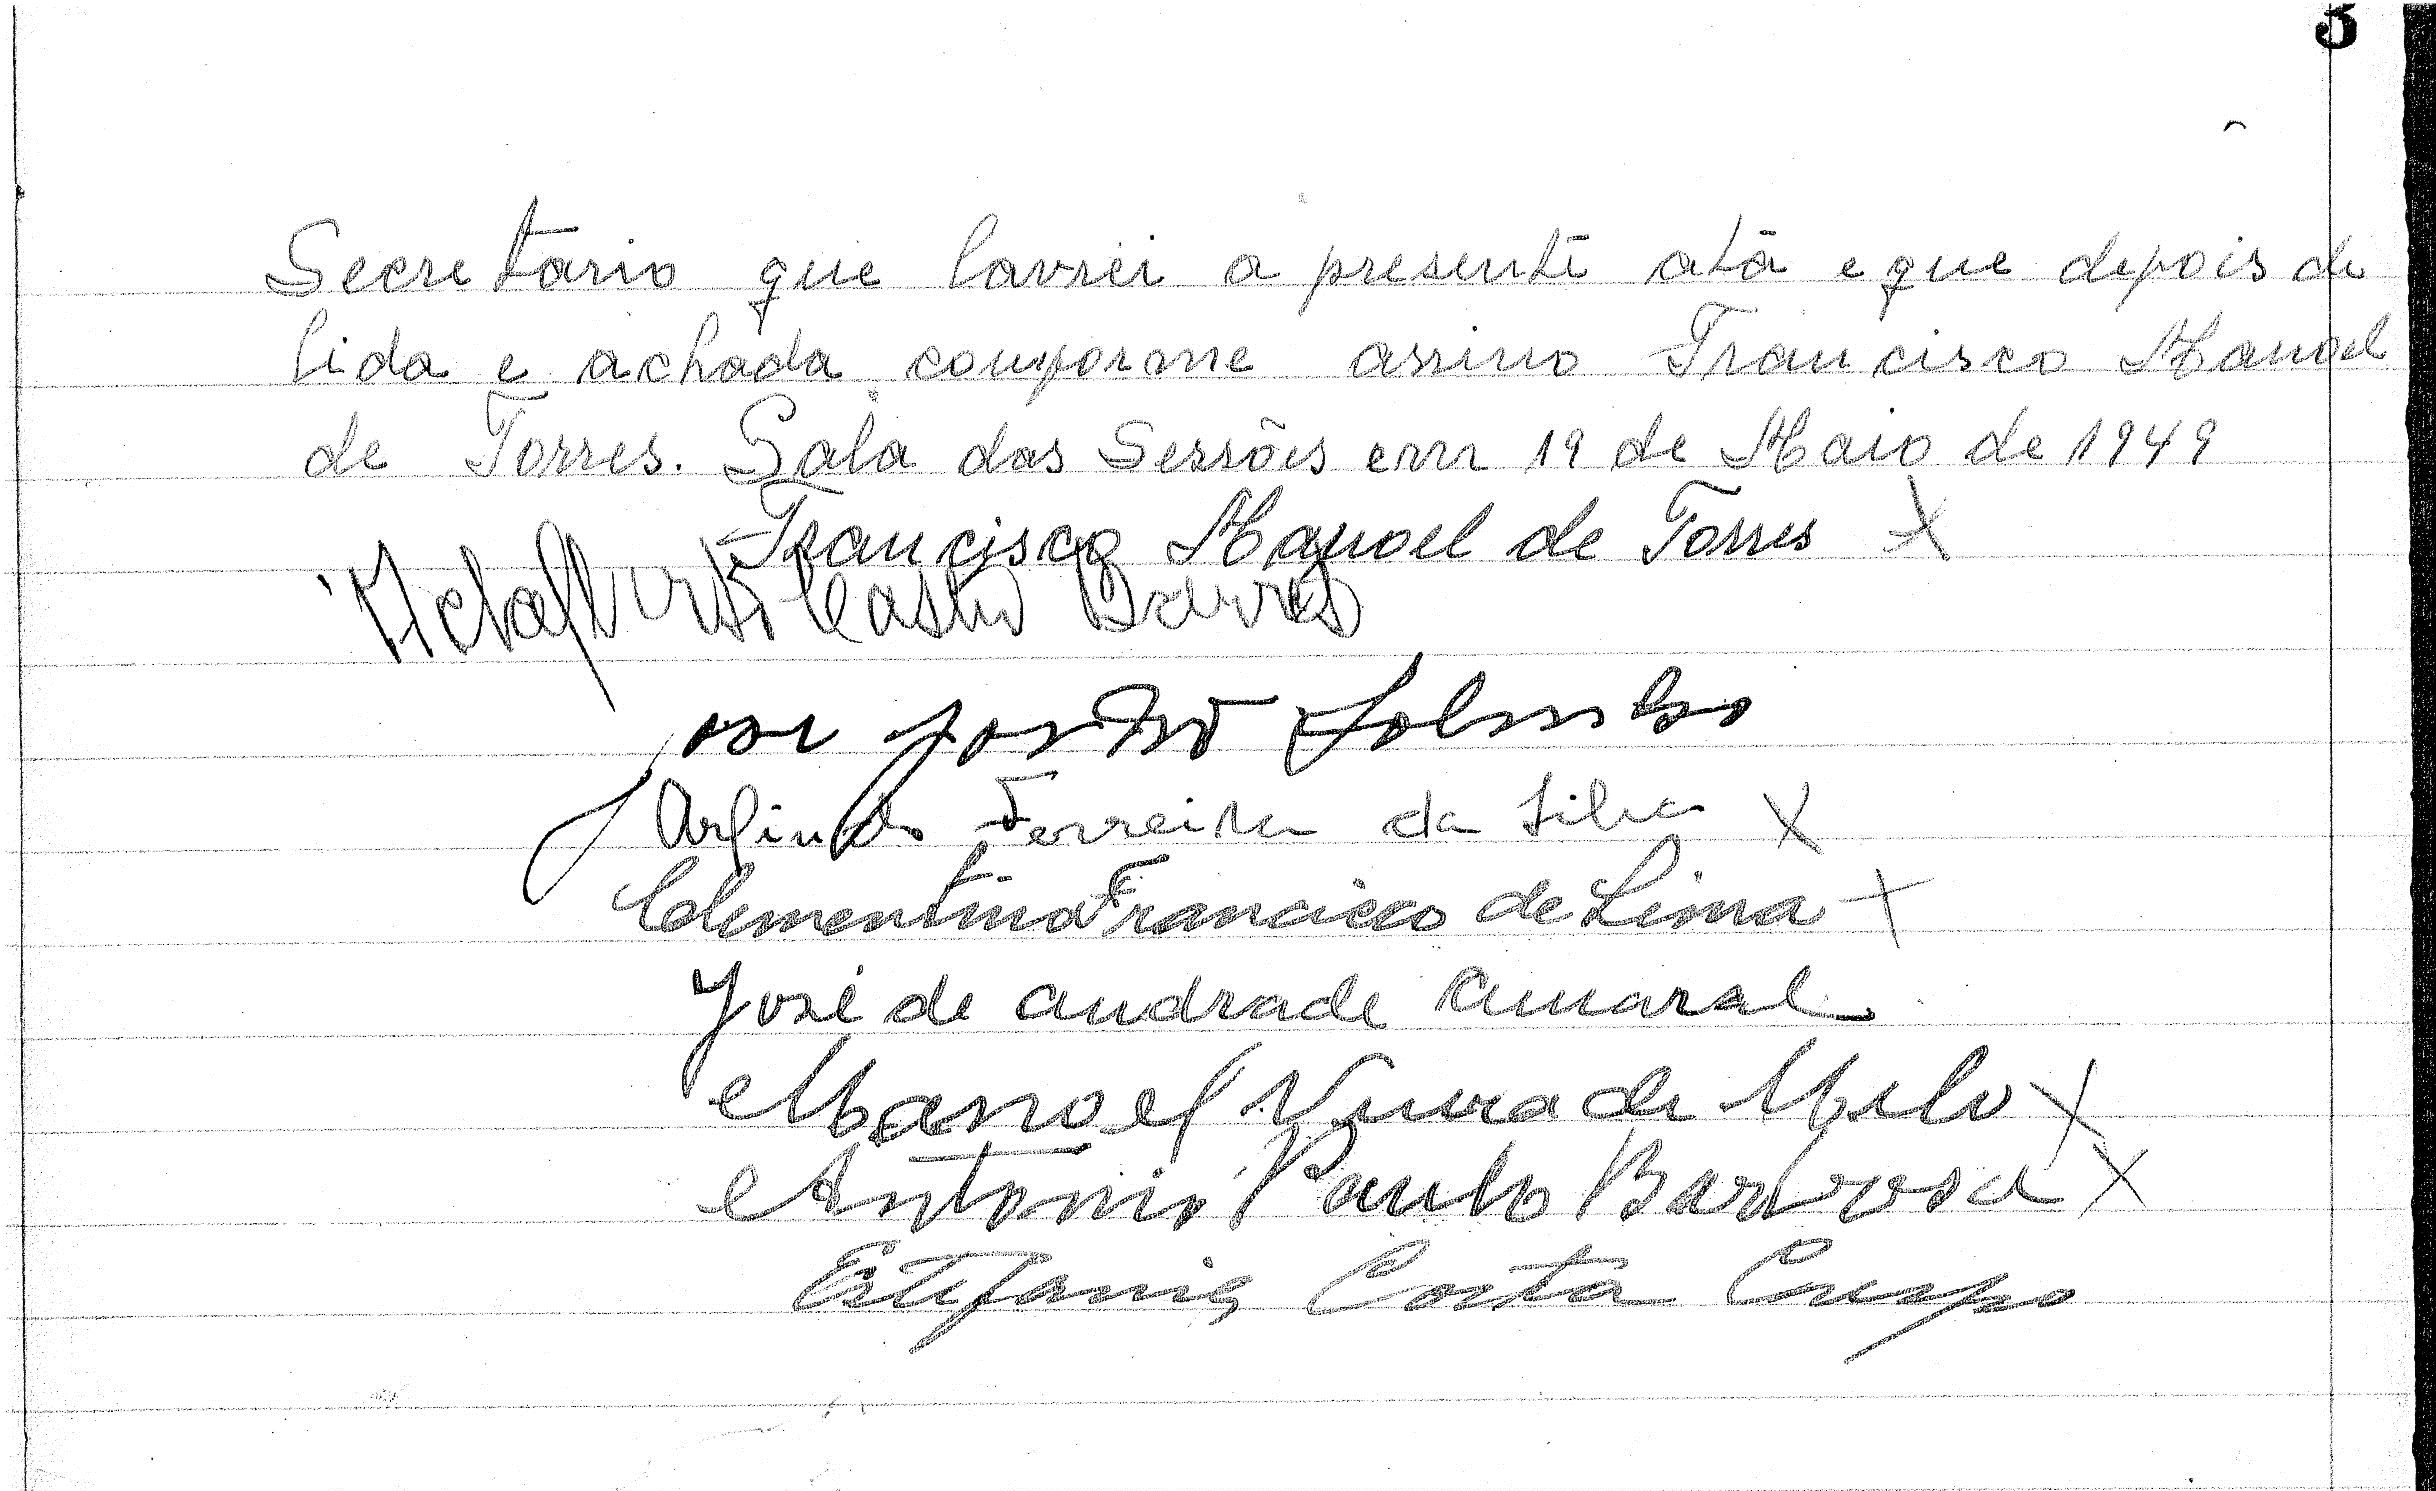 3
Secretario que lavrei a presente ata e que depois de
lida e achada comforme assino Francisco Manoel
de Torres. Sala das Sessões em 19 de Maio de 1949
Francisco Manoel de Torres X
Castro Barros
Arlindo Ferreira da Silva X
Clementino Francisco de Lima X
José de andrade Amaral
Manoel Vieira de Melo X
Antonio Paulo Barbosa X
Estefania Costa Crespo